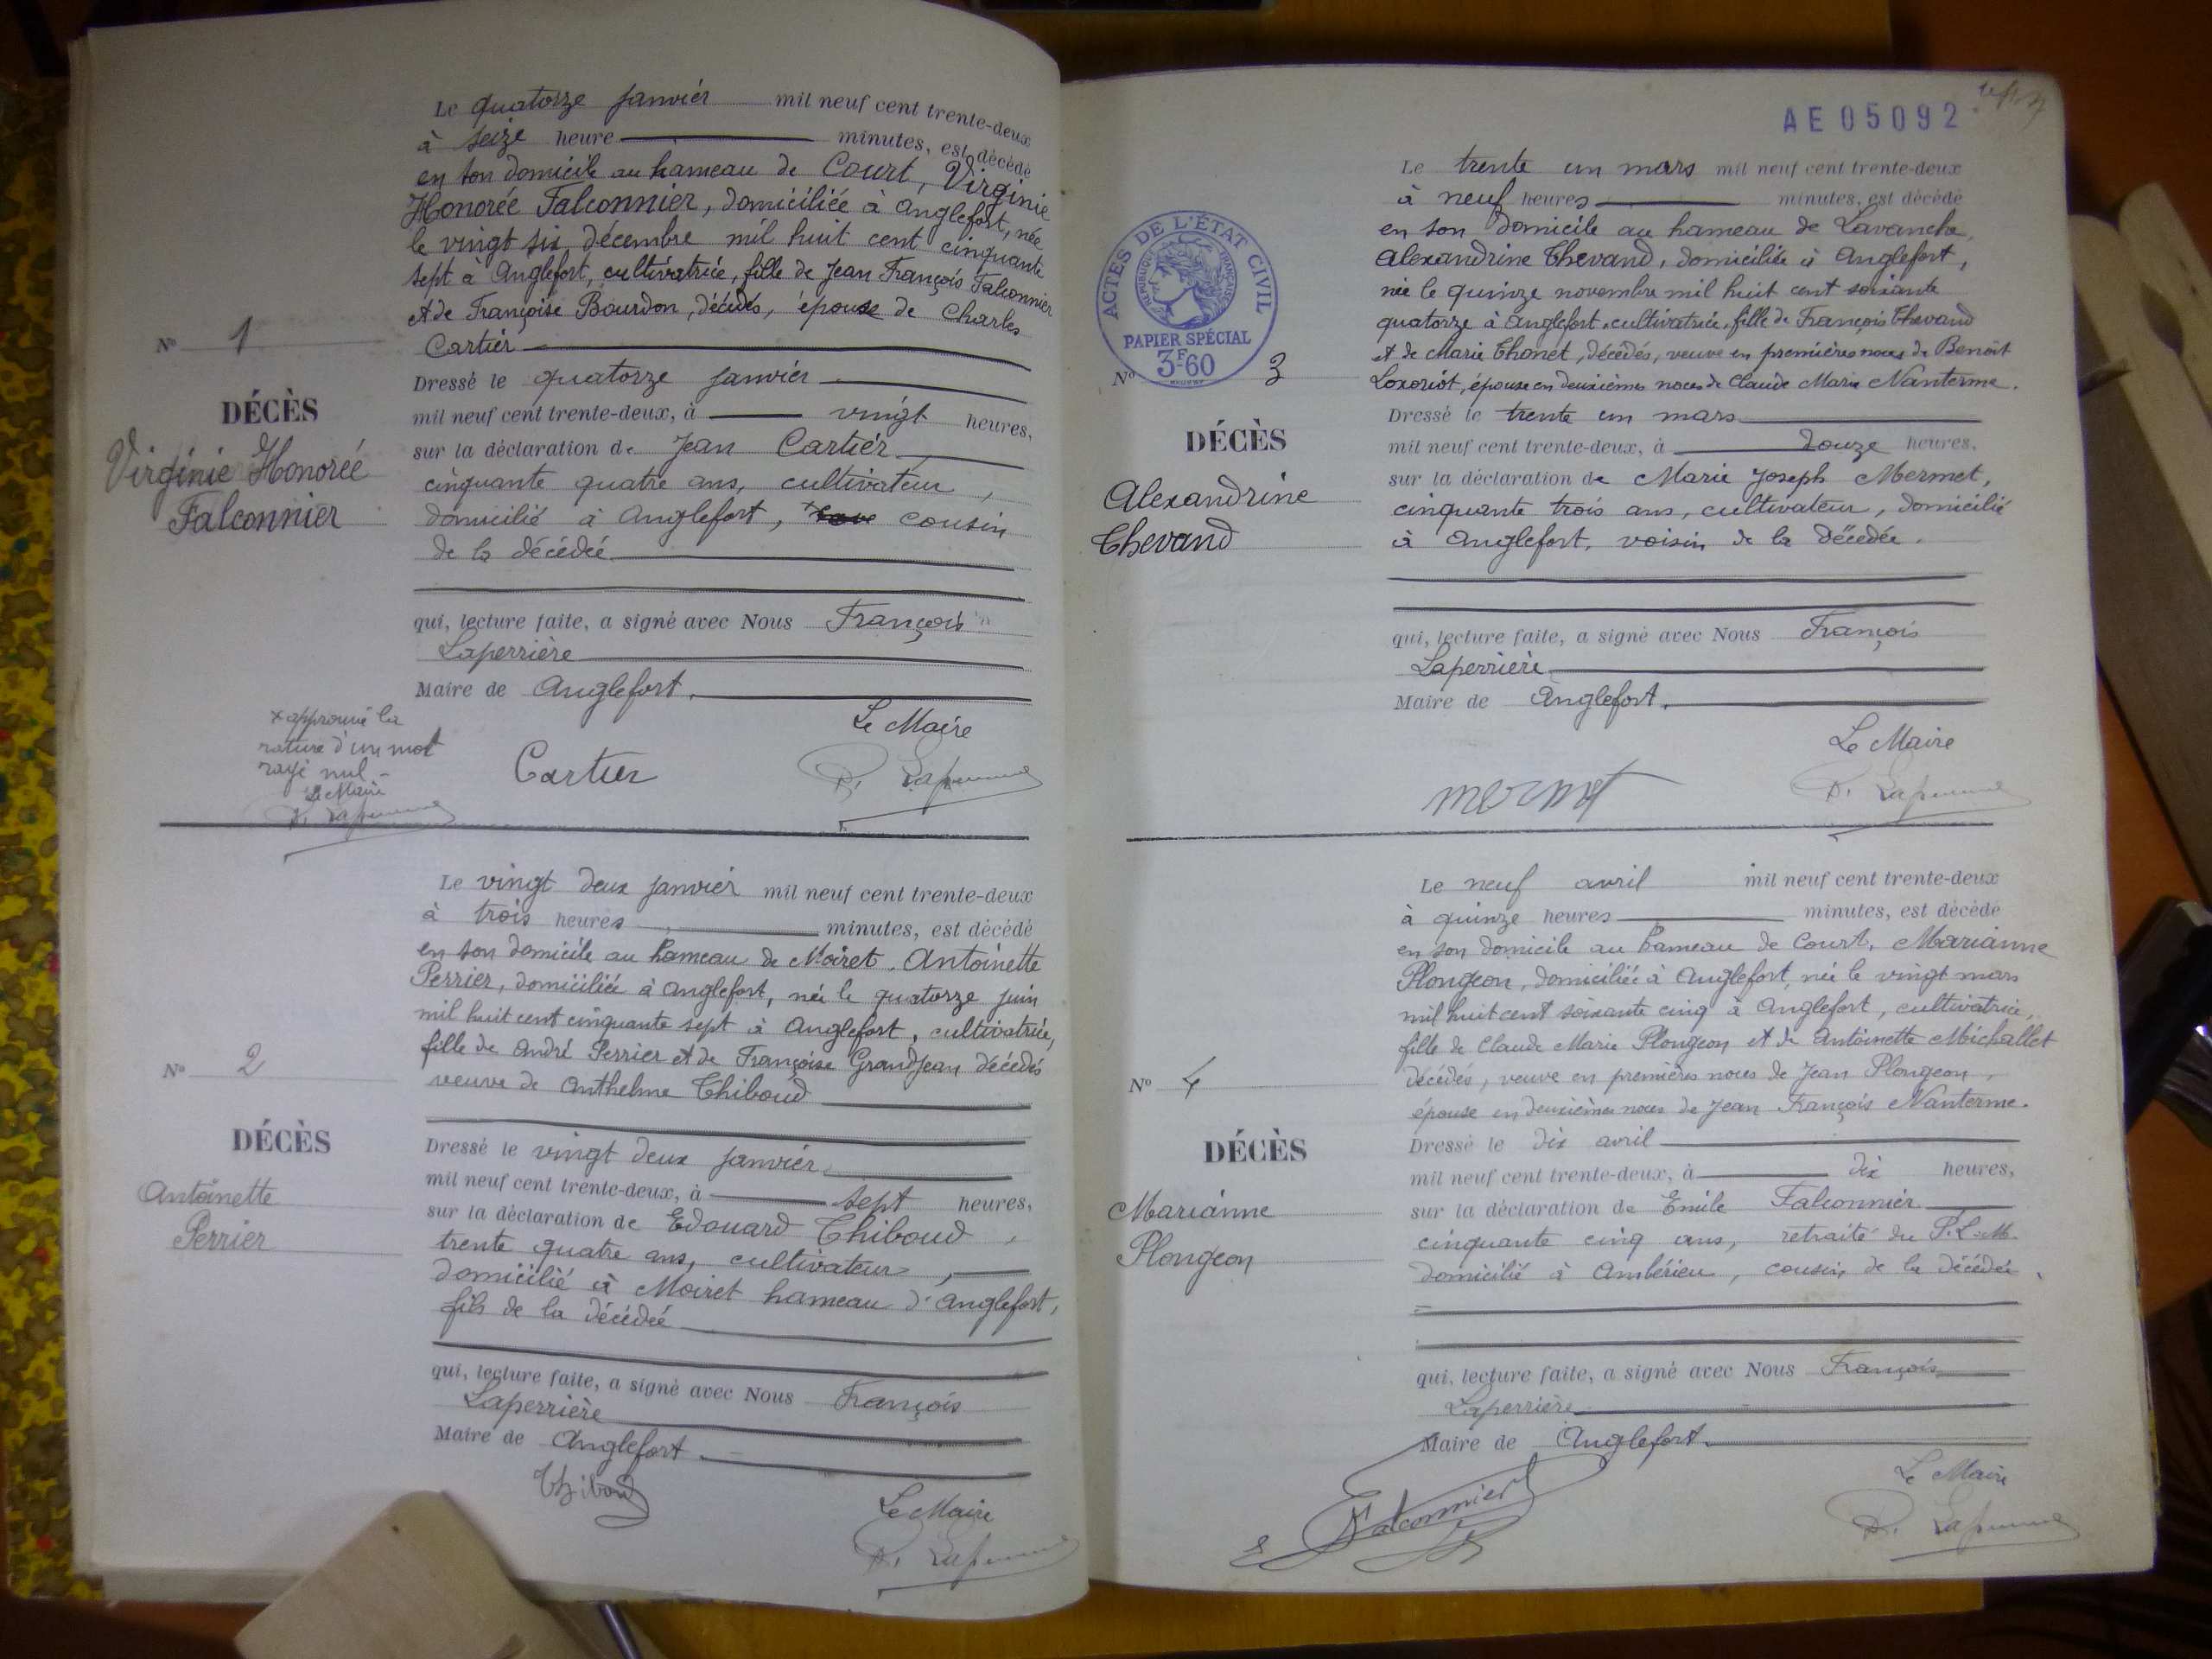 Le quatorze janvier mil neuf cent trente-deux
à seize heure minutes, est décédé
en son domicile au hameau de Court, Virginie
Honorée Falconnier, domiciliée à Anglefort, née
le vingt six décembre mil huit cent cinquante
sept à Anglefort, cultivatrice, fille de Jean François Falconnier
et de Françoise Bourdon, décédés, épouse de Charles
Cartier
Nº 1
DÉCÈS
Virginie Honorée
Falconnier
Dressé le quatorze janvier
mil neuf cent trente-deux, à vingt heures,
sur la déclaration de Jean Cartier,
cinquante quatre ans, cultivateur,
domicilié à Anglefort, cousin
de la décédée
qui, lecture faite, a signé avec Nous François
Laperrière
Maire de Anglefort.
x approuvé la
rature d'un mot
rayé nul -
Le Maire
Le Maire
Cartier
Le vingt deux janvier mil neuf cent trente-deux
à trois heures minutes, est décédé
en son domicile au hameau de Moiret, Antoinette
Perrier, domiciliée à Anglefort, née le quatorze juin
mil huit cent cinquante sept à Anglefort, cultivatrice,
fille de André Perrier et de Françoise Grandjean décédés
veuve de Anthelme Thiboud
Nº 2
DÉCÈS
Antoinette
Perrier
Dressé le vingt deux janvier
mil neuf cent trente-deux, à sept heures,
sur la déclaration de Edouard Thiboud,
trente quatre ans, cultivateur,
domicilié à Moiret hameau d'Anglefort,
fils de la décédée
qui, lecture faite, a signé avec Nous François
Laperrière
Maire de Anglefort.
Thiboud
Le Maire
AE 05092
Le trente un mars mil neuf cent trente-deux
à neuf heures minutes, est décédé
en son domicile au hameau de Lavanche,
Alexandrine Thevand, domiciliée à Anglefort,
née le quinze novembre mil huit cent soixante
quatorze à Anglefort, cultivatrice, fille de François Thevand
et de Marie Thonet, décédés, veuve en premières noces de Benoit
Loxoriot, épouse en deuxièmes noces de Claude Marie Nanterme.
ACTES DE L'ÉTAT CIVIL
RÉPUBLIQUE FRANÇAISE
PAPIER SPÉCIAL
3F60
Nº 3
DÉCÈS
Alexandrine
Thevand
Dressé le trente un mars
mil neuf cent trente-deux, à douze heures,
sur la déclaration de Marie Joseph Mermet,
cinquante trois ans, cultivateur, domicilié
à Anglefort, voisin de la décédée.
qui, lecture faite, a signé avec Nous François
Laperrière
Maire de Anglefort.
Le Maire
mermet
Le neuf avril mil neuf cent trente-deux
à quinze heures minutes, est décédé
en son domicile au hameau de Court, Marianne
Plongeon, domiciliée à Anglefort, née le vingt mars
mil huit cent soixante cinq à Anglefort, cultivatrice,
fille de Claude Marie Plongeon et de Antoinette Michallet
décédés, veuve en premières noces de Jean Plongeon,
épouse en deuxièmes noces de Jean François Nanterme.
Nº 4
DÉCÈS
Marianne
Plongeon
Dressé le dix avril
mil neuf cent trente-deux, à dix heures,
sur la déclaration de Emile Falconnier
cinquante cinq ans, retraité du P.L.M.
domicilié à Ambérieu, cousin de la décédée.
qui, lecture faite, a signé avec Nous François
Laperrière
Maire de Anglefort.
Le Maire
E Falconnier